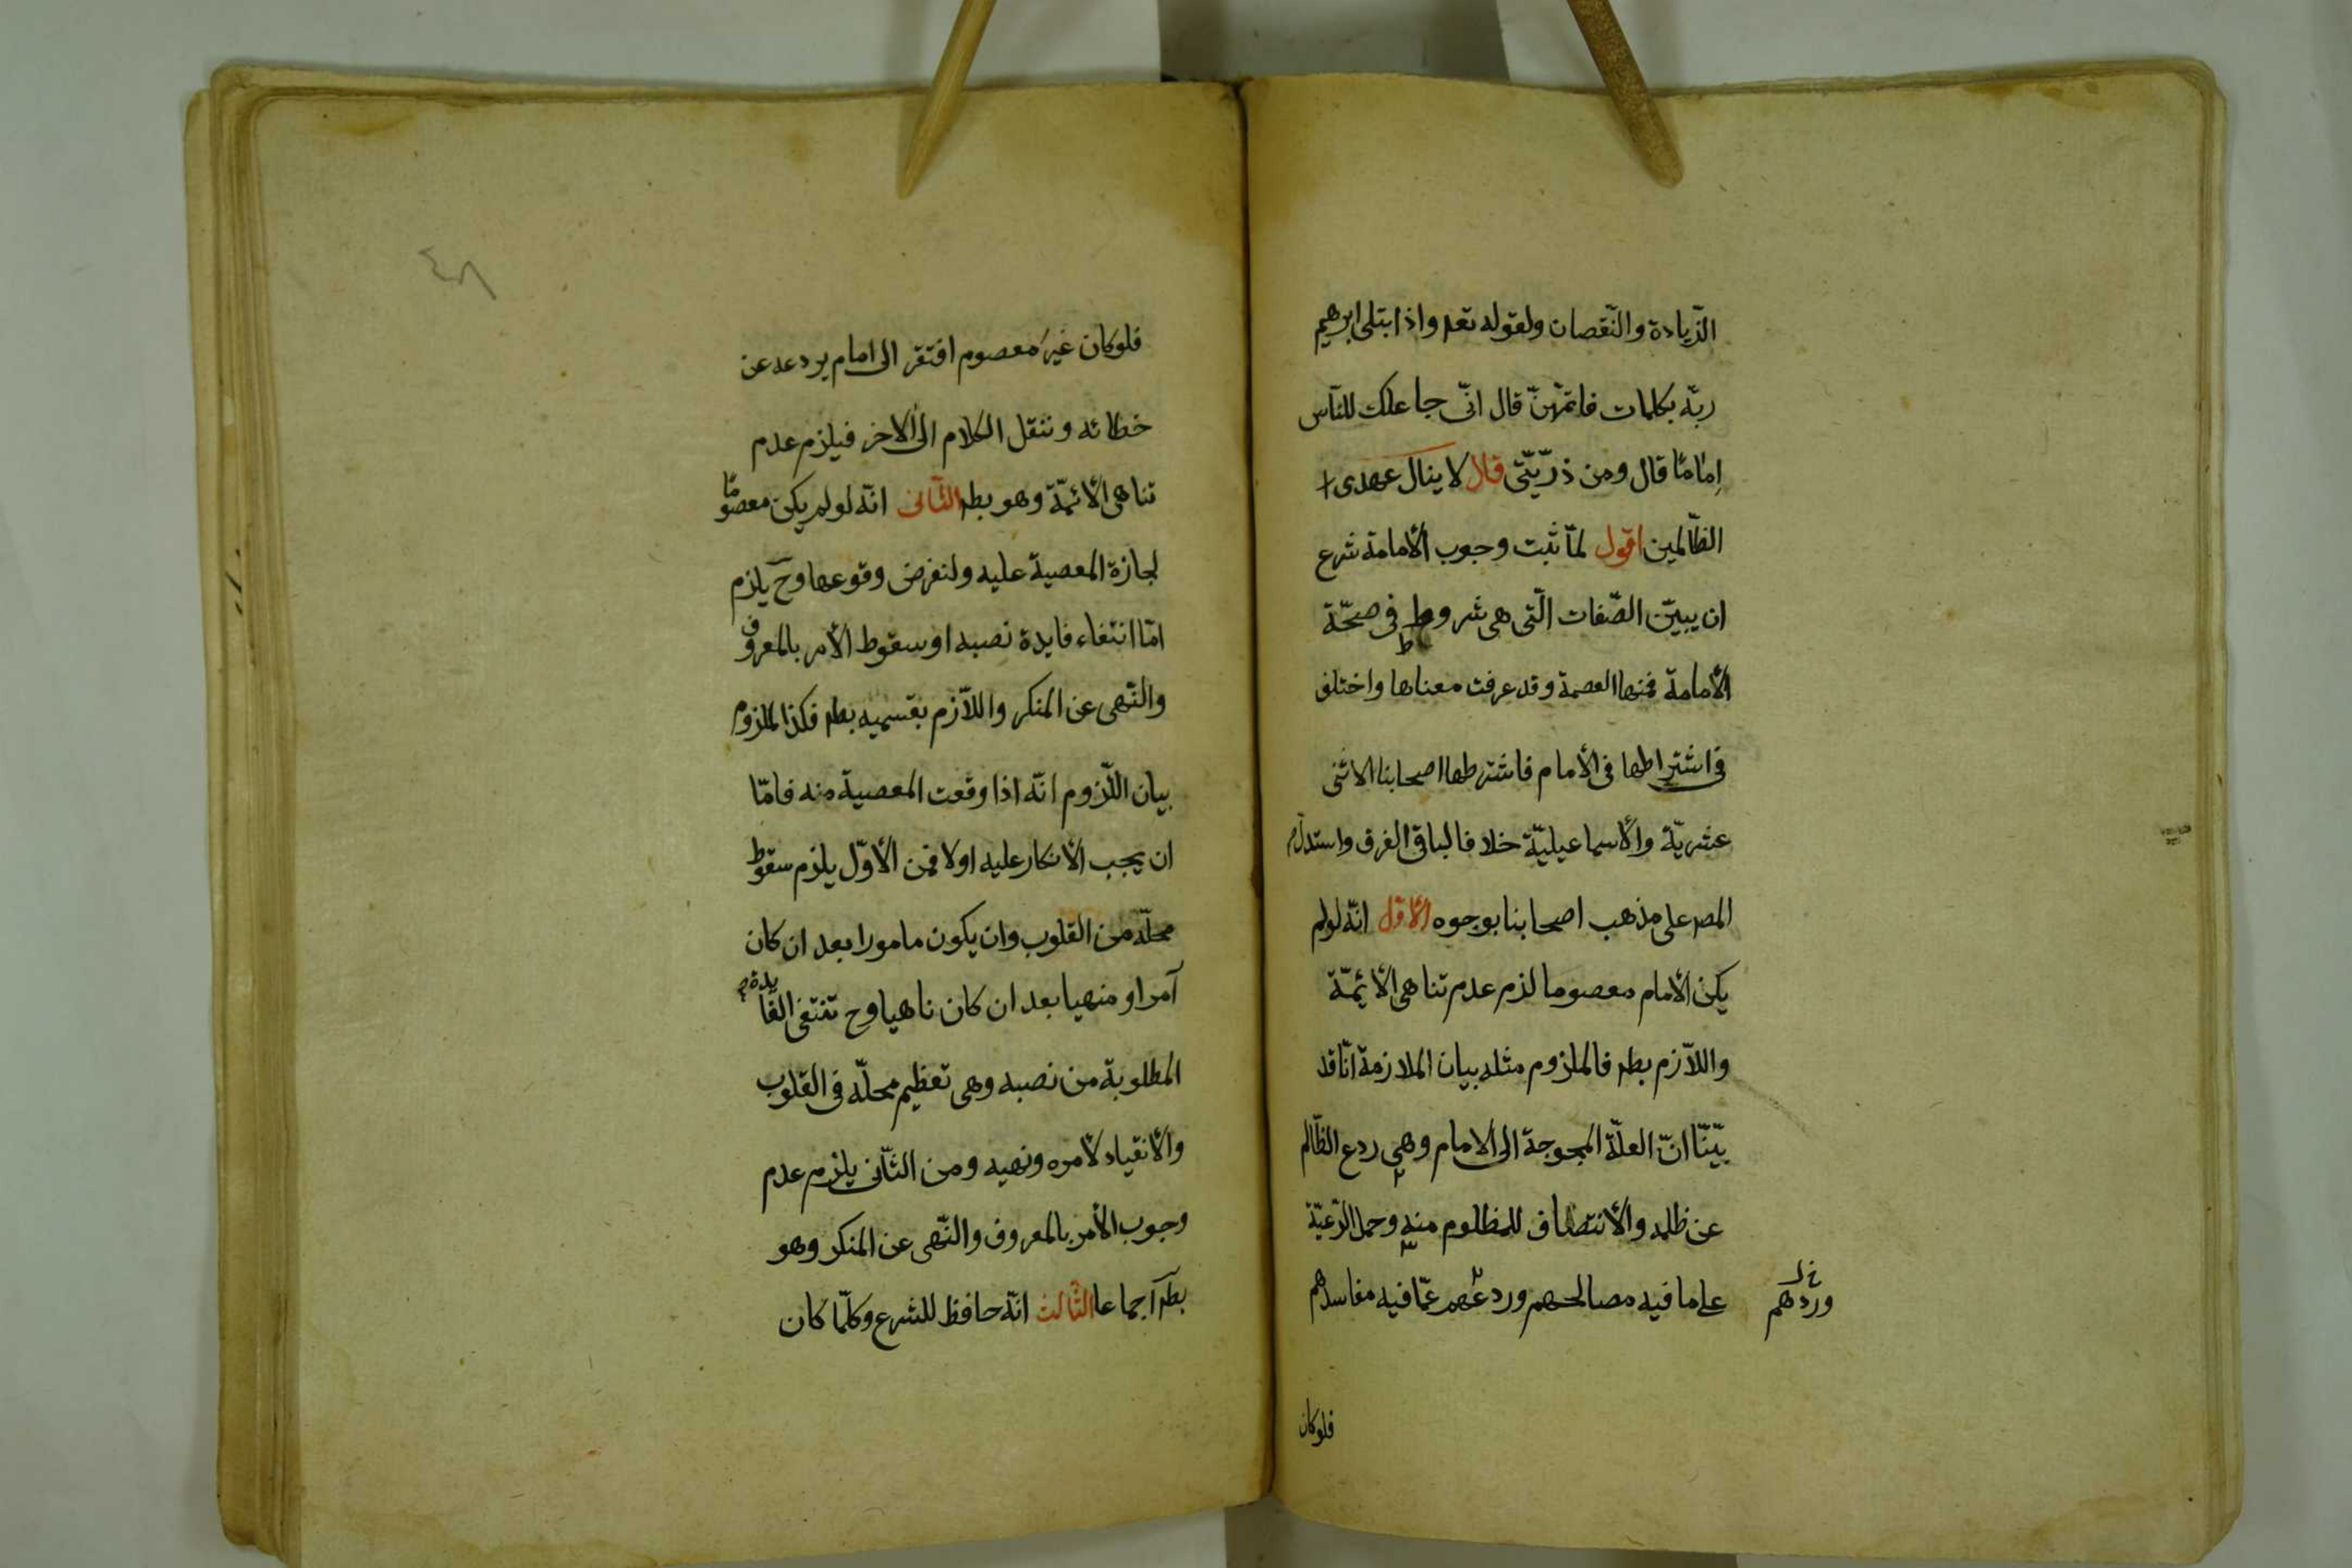 الزّيادة والنّقصان ولقوله تعه واذ ابتلى ابرهيم
ربّه بكلمات فاتمّهنّ قال انّى جاعلك للنّاس
اِمامًا قال ومن ذرّيّتى قال لا ينال عهدى
الظّالمين اقول لمّا ثبت وجوب الأمامة شرع
ان يبيّن الصّفات الّتى هى شروط فى صحّة
ط
الأمامة فمنها العصمة وقد عرفت معناها واختلف
فى اشتراطها فى الأمام فاشترطها اصحابنا الاثنى
عشريّة والأسماعيليّة خلافا لباقى الفرق واستدلّ
المصـ على مذهب اصحابنا بوجوه الأوّل انّه لو لم
يكن الأمام معصوما لزم عدم تناهى الأئمّة
واللاّزم بطـ فالملزوم مثله بيان الملازمة انّا قد
بيّنّا انّ العلّة المحوجة الى الامام وهى ردع الظّالم
عن ظلمه والأنتصاف للمظلوم منه وحمل الرّعيّة
على ما فيه مصالحهم وردعهم عمّا فيه مفاسدهم
خ ل
وردّهم
فلو كان
٤٨
فلو كان غير معصوم افتقر الى امام يردعه عن
خطائه وننقل الكلام الى الأخر فيلزم عدم
تناهى الأئمّة وهو بطـ الثّانى انّه لو لم يكن معصومًا
لجازة المعصية عليه ولنفرض وقوعها وح يلزم
امّا انتفاء فايدة نصبه او سقوط الأمر بالمعروف
والنّهى عن المنكر واللاّزم بقسميه بطـ فكذا الملزوم
بيان اللّزوم انّه اذا وقعت المعصية منه فامّا
ان يجب الأنكار عليه اولا فمن الأوّل يلزم سقوط
محلّه من القلوب وان يكون مامورا بعد ان كان
آمرا و منهيا بعد ان كان ناهيا وح تنتفى الفايدة
المطلوبة من نصبه وهى تعظيم محلّه فى القلوب
والأنقياد لأمره ونهيه ومن الثّانى يلزم عدم
وجوب الأمر بالمعروف والنّهى عن المنكر وهو
بطـ اجماعا الثّالث انّه حافظ للشرع وكلّما كان